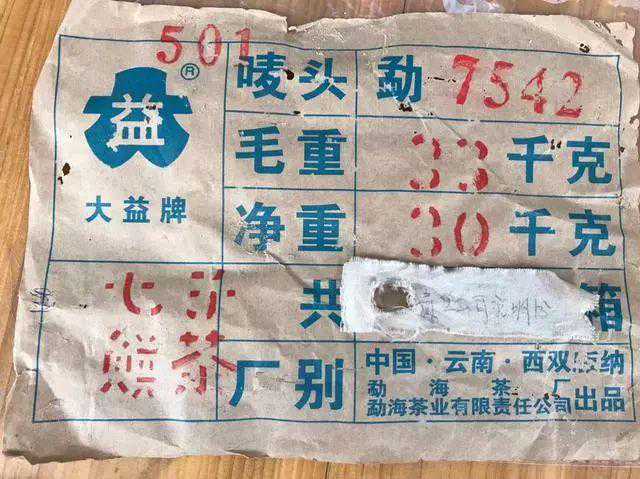 501
益
®
大益牌
唛头 勐 7542
毛重 33 千克
净重 30 千克
七子
饼茶
共 箱
厂别
中国·云南·西双版纳
勐海茶厂
勐海茶业有限责任公司
出品